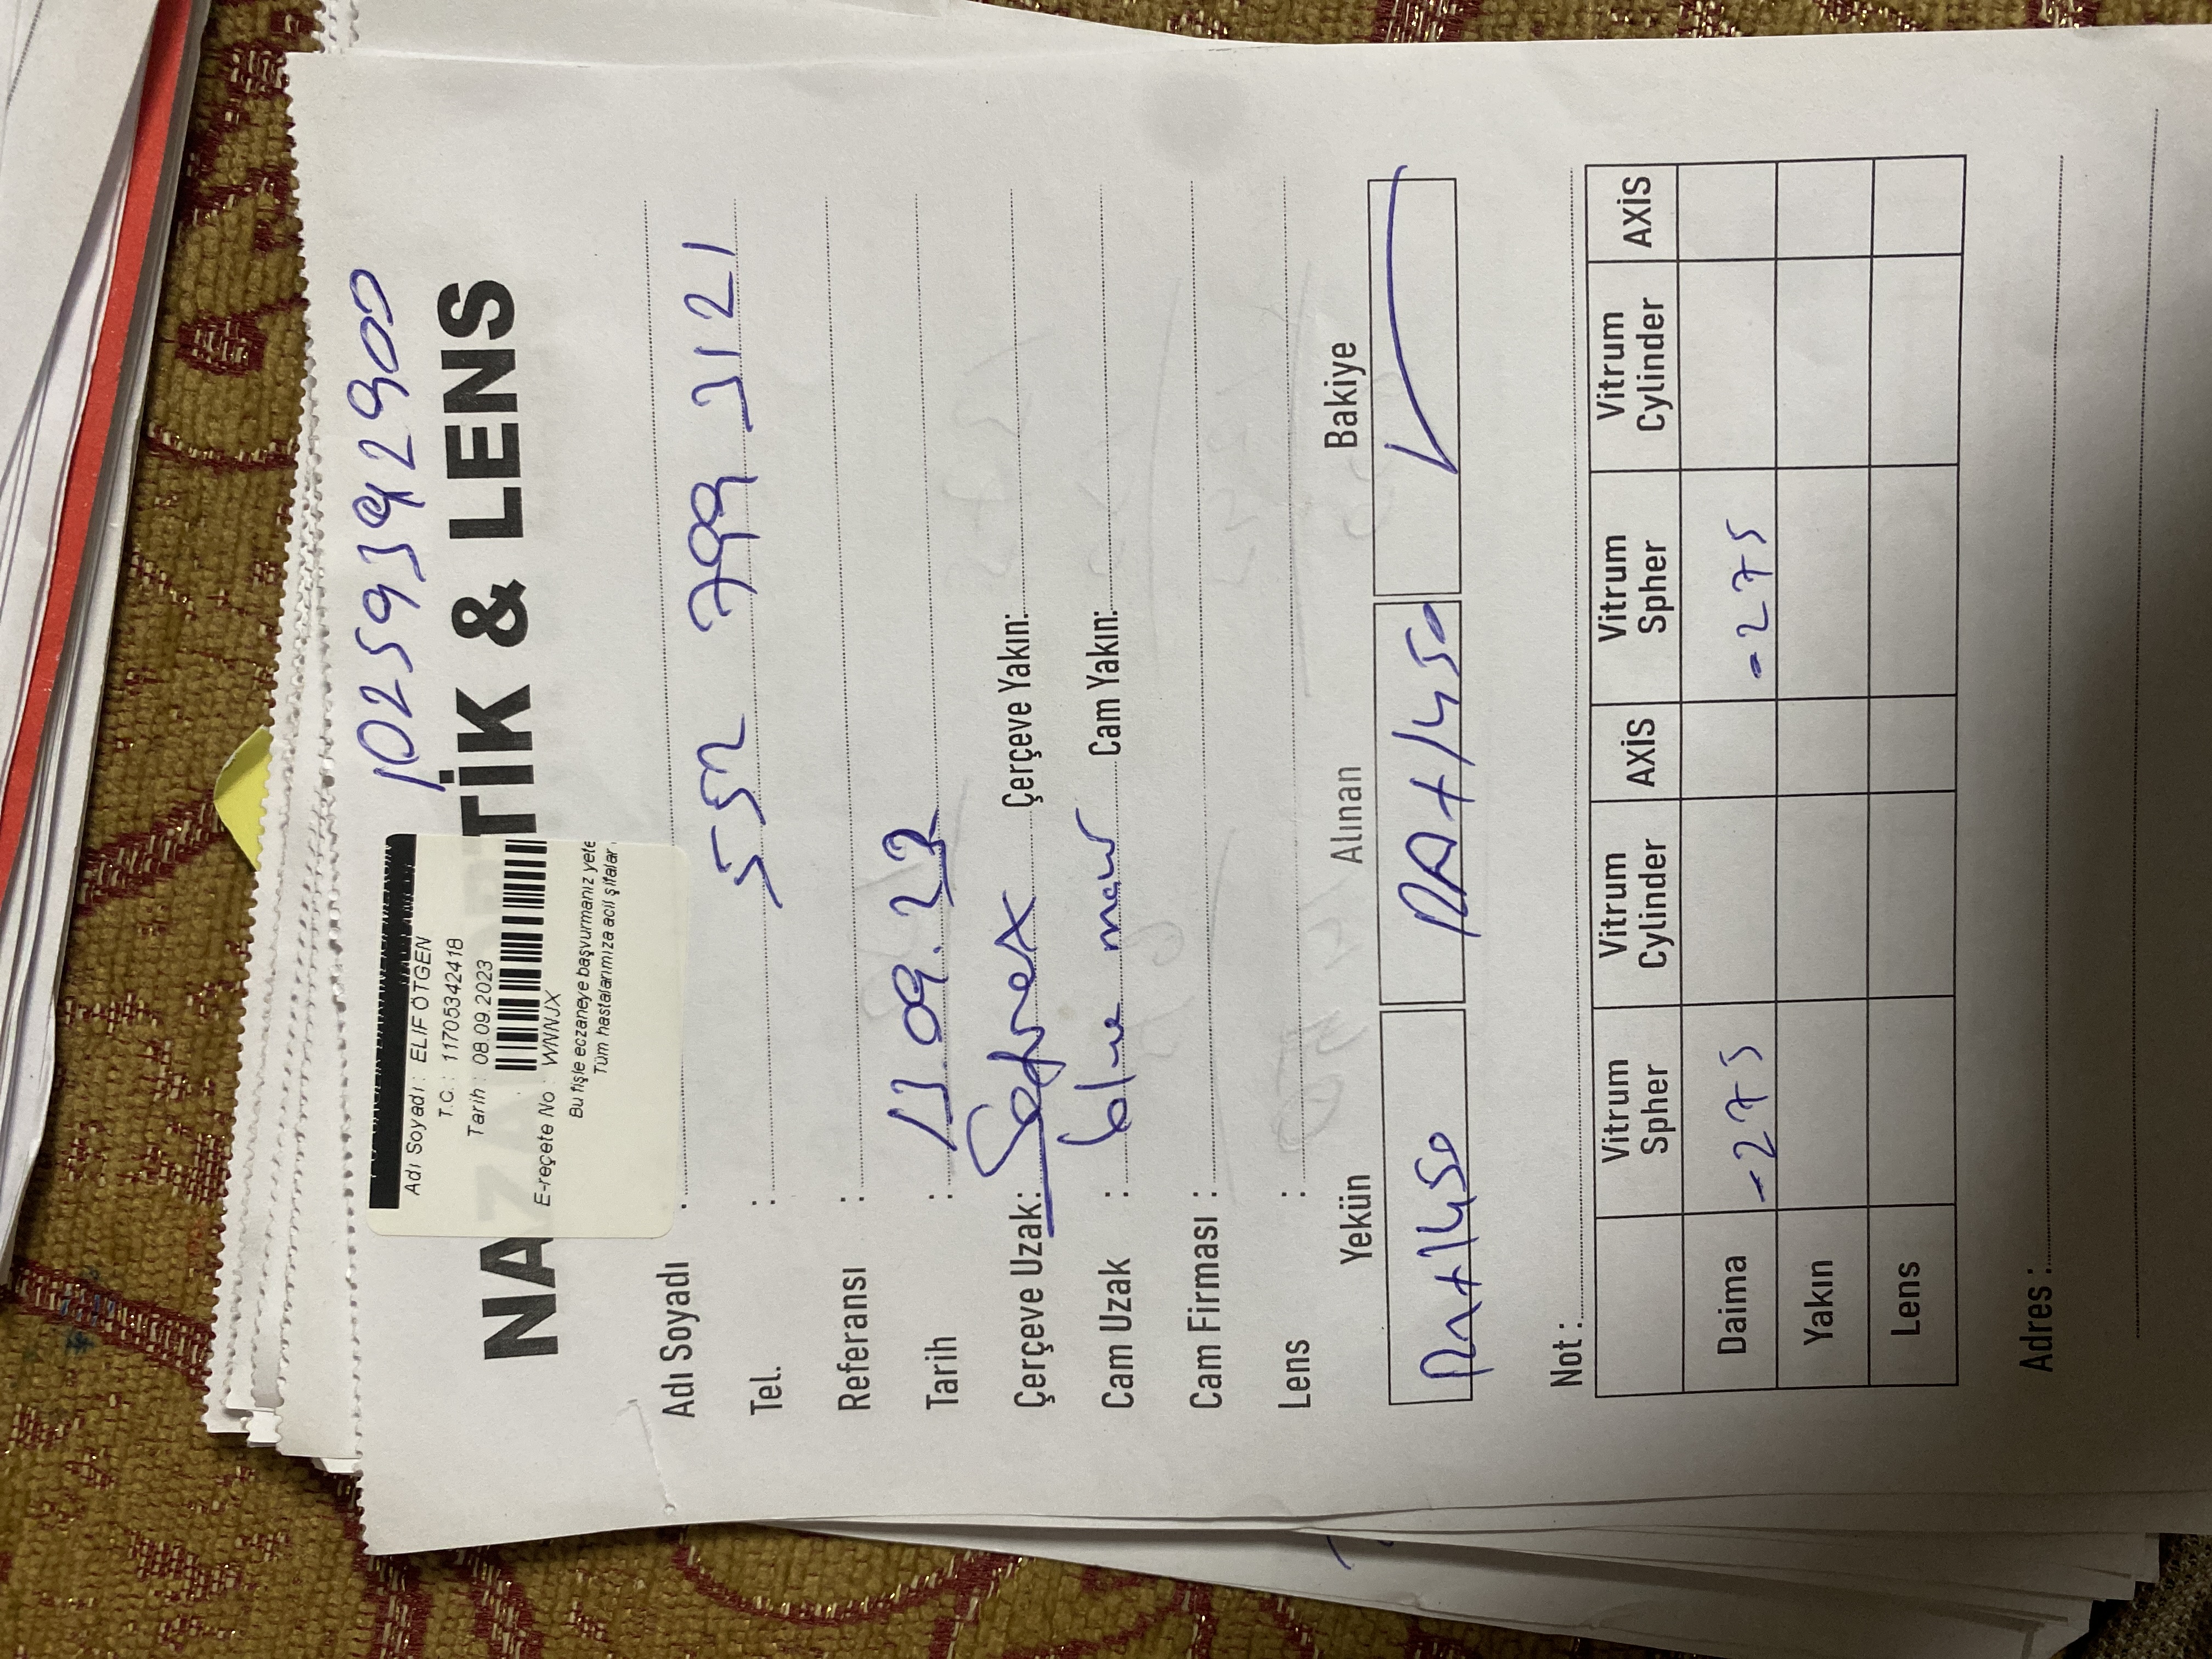 10259392900
Adı Soyadı : ELIF ÖTGEN
T.C. : 11705342418
Tarih : 08.09.2023
E-reçete No : WNNJX
Bu fişle eczaneye başvurmanız yete
Tüm hastalarımıza acil şifalar
NA TİK & LENS
Adı Soyadı :
Tel. : 552 799 3121
Referansı :
Tarih : 13.09.23
Çerçeve Uzak: Çerçeve Yakın:
Cam Uzak : blue Cam Yakın:
Cam Firması :
Lens :
Yekün Alınan Bakiye
RA+1450 RA+1450
Not :
Vitrum Spher Vitrum Cylinder AXİS Vitrum Spher Vitrum Cylinder AXİS
Daima -275 -275
Yakın
Lens
Adres :